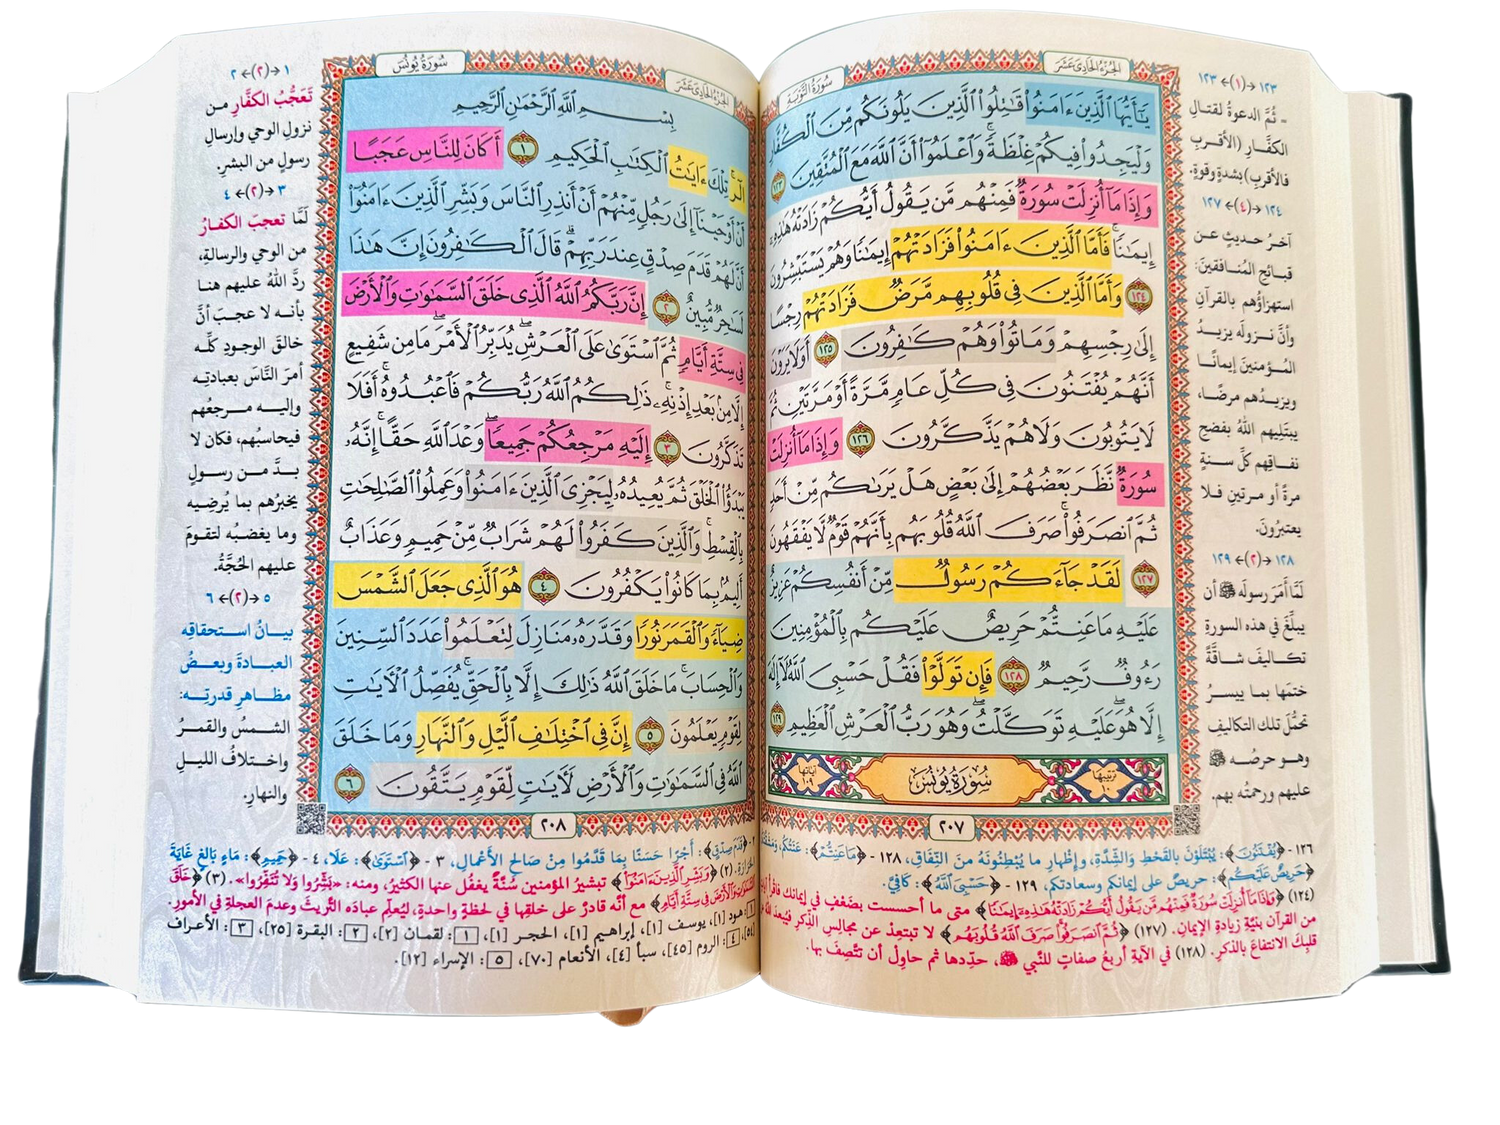 الجزء الحادي عشر
سورة التوبة
يَٰٓأَيُّهَا ٱلَّذِينَ ءَامَنُوا۟ قَٰتِلُوا۟ ٱلَّذِينَ يَلُونَكُم مِّنَ ٱلْكُفَّارِ
وَلْيَجِدُوا۟ فِيكُمْ غِلْظَةً ۚ وَٱعْلَمُوٓا۟ أَنَّ ٱللَّهَ مَعَ ٱلْمُتَّقِينَ ١٢٣
وَإِذَا مَآ أُنزِلَتْ سُورَةٌ فَمِنْهُم مَّن يَقُولُ أَيُّكُمْ زَادَتْهُ هَٰذِهِۦٓ
إِيمَٰنًا ۚ فَأَمَّا ٱلَّذِينَ ءَامَنُوا۟ فَزَادَتْهُمْ إِيمَٰنًا وَهُمْ يَسْتَبْشِرُونَ
١٢٤ وَأَمَّا ٱلَّذِينَ فِى قُلُوبِهِم مَّرَضٌ فَزَادَتْهُمْ رِجْسًا
إِلَىٰ رِجْسِهِمْ وَمَاتُوا۟ وَهُمْ كَٰفِرُونَ ١٢٥ أَوَلَا يَرَوْنَ
أَنَّهُمْ يُفْتَنُونَ فِى كُلِّ عَامٍ مَّرَّةً أَوْ مَرَّتَيْنِ ثُمَّ
لَا يَتُوبُونَ وَلَا هُمْ يَذَّكَّرُونَ ١٢٦ وَإِذَا مَآ أُنزِلَتْ
سُورَةٌ نَّظَرَ بَعْضُهُمْ إِلَىٰ بَعْضٍ هَلْ يَرَىٰكُم مِّنْ أَحَدٍ
ثُمَّ ٱنصَرَفُوا۟ ۚ صَرَفَ ٱللَّهُ قُلُوبَهُم بِأَنَّهُمْ قَوْمٌ لَّا يَفْقَهُونَ
١٢٧ لَقَدْ جَآءَكُمْ رَسُولٌ مِّنْ أَنفُسِكُمْ عَزِيزٌ
عَلَيْهِ مَا عَنِتُّمْ حَرِيصٌ عَلَيْكُم بِٱلْمُؤْمِنِينَ
رَءُوفٌ رَّحِيمٌ ١٢٨ فَإِن تَوَلَّوْا۟ فَقُلْ حَسْبِىَ ٱللَّهُ لَآ إِلَٰهَ
إِلَّا هُوَ ۖ عَلَيْهِ تَوَكَّلْتُ ۖ وَهُوَ رَبُّ ٱلْعَرْشِ ٱلْعَظِيمِ ١٢٩
ترتيبها ١٠ سورة يونس آياتها ١٠٩
٢٠٧
١٢٣ ←(١)→ ١٢٣
= ثُمَّ الدعوةُ لقتالِ
الكفَّارِ (الأقربِ
فالأقربِ) بشدةٍ وقوةٍ.
١٢٤ ←(٤)→ ١٢٧
آخرُ حديثٍ عن
قبائحِ المُنافقينَ:
استهزاؤُهم بالقرآنِ
وأنَّ نزولَه يزيدُ
المُؤمنينَ إيمانًا
ويزيدُهم مرضًا،
يبتَلِيهم اللهُ بفضحِ
نفاقِهم كلَّ سنةٍ
مرةً أو مرتينِ فلا
يعتبرُونَ.
١٢٨ ←(٢)→ ١٢٩
لَمَّا أمَرَ رسولَه ﷺ أن
يبلِّغَ في هذه السورةِ
تكاليفَ شاقَّةً
ختمَها بما ييسرُ
تحمُّلَ تلك التكاليفِ
وهو حرصُه ﷺ
عليهم ورحمتُه بهم.
١٢٦- ﴿يُفْتَنُونَ﴾: يُبْتَلَوْنَ بِالقَحْطِ وَالشِّدَّةِ، وإظْهارِ ما يُبْطِنُونَهُ مِنَ النِّفَاقِ، ١٢٨- ﴿مَا عَنِتُّمْ﴾: عَنَتُكُم، وَمَشَقَّتُكُم،
﴿حَرِيصٌ عَلَيْكُم﴾: حريصٌ على إيمانِكم وسعادتِكم، ١٢٩- ﴿حَسْبِيَ اللهُ﴾: كَافِيَّ.
(١٢٤) ﴿وَإِذَا مَا أُنزِلَتْ سُورَةٌ فَمِنْهُم مَّن يَقُولُ أَيُّكُمْ زَادَتْهُ هَٰذِهِ إِيمَانًا﴾ متى ما أحسست بضَعْفٍ في إيمانك فاقرأ
من القرآن بنيَّةِ زيادةِ الإيمانِ. (١٢٧) ﴿ثُمَّ انصَرَفُوا صَرَفَ اللهُ قُلُوبَهُم﴾ لا تبتعِدْ عن مجالسِ الذِّكرِ فيُبعدَ اللهُ
قلبَكَ الانتفاعَ بالذكرِ. (١٢٨) في الآيةِ أربعُ صفاتٍ للنَّبي ﷺ، حدِّدها ثم حاوِل أن تتَّصِفَ بها.
الجزء الحادي عشر
سورة يونس
بِسْمِ ٱللَّهِ ٱلرَّحْمَٰنِ ٱلرَّحِيمِ
الٓر ۚ تِلْكَ ءَايَٰتُ ٱلْكِتَٰبِ ٱلْحَكِيمِ ١ أَكَانَ لِلنَّاسِ عَجَبًا
أَنْ أَوْحَيْنَآ إِلَىٰ رَجُلٍ مِّنْهُمْ أَنْ أَنذِرِ ٱلنَّاسَ وَبَشِّرِ ٱلَّذِينَ ءَامَنُوٓا۟
أَنَّ لَهُمْ قَدَمَ صِدْقٍ عِندَ رَبِّهِمْ ۗ قَالَ ٱلْكَٰفِرُونَ إِنَّ هَٰذَا
لَسَٰحِرٌ مُّبِينٌ ٢ إِنَّ رَبَّكُمُ ٱللَّهُ ٱلَّذِى خَلَقَ ٱلسَّمَٰوَٰتِ وَٱلْأَرْضَ
فِى سِتَّةِ أَيَّامٍ ثُمَّ ٱسْتَوَىٰ عَلَى ٱلْعَرْشِ ۖ يُدَبِّرُ ٱلْأَمْرَ ۖ مَا مِن شَفِيعٍ
إِلَّا مِنۢ بَعْدِ إِذْنِهِۦ ۚ ذَٰلِكُمُ ٱللَّهُ رَبُّكُمْ فَٱعْبُدُوهُ ۚ أَفَلَا
تَذَكَّرُونَ ٣ إِلَيْهِ مَرْجِعُكُمْ جَمِيعًا ۖ وَعْدَ ٱللَّهِ حَقًّا ۚ إِنَّهُۥ
يَبْدَؤُا۟ ٱلْخَلْقَ ثُمَّ يُعِيدُهُۥ لِيَجْزِىَ ٱلَّذِينَ ءَامَنُوا۟ وَعَمِلُوا۟ ٱلصَّٰلِحَٰتِ
بِٱلْقِسْطِ ۚ وَٱلَّذِينَ كَفَرُوا۟ لَهُمْ شَرَابٌ مِّنْ حَمِيمٍ وَعَذَابٌ
أَلِيمٌۢ بِمَا كَانُوا۟ يَكْفُرُونَ ٤ هُوَ ٱلَّذِى جَعَلَ ٱلشَّمْسَ
ضِيَآءً وَٱلْقَمَرَ نُورًا وَقَدَّرَهُۥ مَنَازِلَ لِتَعْلَمُوا۟ عَدَدَ ٱلسِّنِينَ
وَٱلْحِسَابَ ۚ مَا خَلَقَ ٱللَّهُ ذَٰلِكَ إِلَّا بِٱلْحَقِّ ۚ يُفَصِّلُ ٱلْءَايَٰتِ
لِقَوْمٍ يَعْلَمُونَ ٥ إِنَّ فِى ٱخْتِلَٰفِ ٱلَّيْلِ وَٱلنَّهَارِ وَمَا خَلَقَ
ٱللَّهُ فِى ٱلسَّمَٰوَٰتِ وَٱلْأَرْضِ لَءَايَٰتٍ لِّقَوْمٍ يَتَّقُونَ ٦
٢٠٨
١ ←(٢)→ ٢
تَعَجُّبُ الكفَّارِ من
نزولِ الوحي وإرسالِ
رسولٍ من البشرِ.
٣ ←(٢)→ ٤
لَمَّا تعجبَ الكفارُ
من الوحي والرسالةِ،
ردَّ اللهُ عليهم هنا
بأنه لا عجبَ أنَّ
خالقَ الوجودِ كلِّه
أمرَ النَّاسَ بعبادتِه
وإليه مرجعُهم
فيحاسبُهم، فكان لا
بدَّ من رسولٍ
يخبرُهم بما يُرضِيه
وما يغضبُه لتقومَ
عليهم الحُجَّةُ.
٥ ←(٢)→ ٦
بيانُ استحقاقِه
العبادةَ وبعضُ
مظاهرِ قدرتِه:
الشمسُ والقمرُ
واختلافُ الليلِ
والنهارِ.
٢- ﴿قَدَمَ صِدْقٍ﴾: أَجْرًا حَسَنًا بِمَا قَدَّمُوا مِنْ صَالِحِ الأَعْمَالِ، ٣- ﴿اسْتَوَىٰ﴾: عَلَا، ٤- ﴿حَمِيمٍ﴾: مَاءٍ بَالِغٍ غَايَةَ
الحرارة. (٢) ﴿وَبَشِّرِ الَّذِينَ آمَنُوا﴾ تبشيرُ المؤمنين سُنَّةٌ يغفُل عنها الكثيرُ، ومنه: «بَشِّرُوا وَلَا تُنَفِّرُوا». (٣) ﴿خَلَقَ
السَّمَاوَاتِ وَالْأَرْضَ فِي سِتَّةِ أَيَّامٍ﴾ مع أنَّه قادرٌ على خلقِها في لحظةٍ واحدةٍ، ليُعلِّمَ عبادَه التَّريُّثَ وعدمَ العجلةِ في الأمورِ.
١: هود [١]، يوسف [١]، إبراهيم [١]، الحجر [١]، ١: لقمان [٢]، ٢: البقرة [٢٥]، ٣: الأعراف
[٥٤]، ٤: الروم [٤٥]، سبأ [٤]، الأنعام [٧٠]، ٥: الإسراء [١٢].